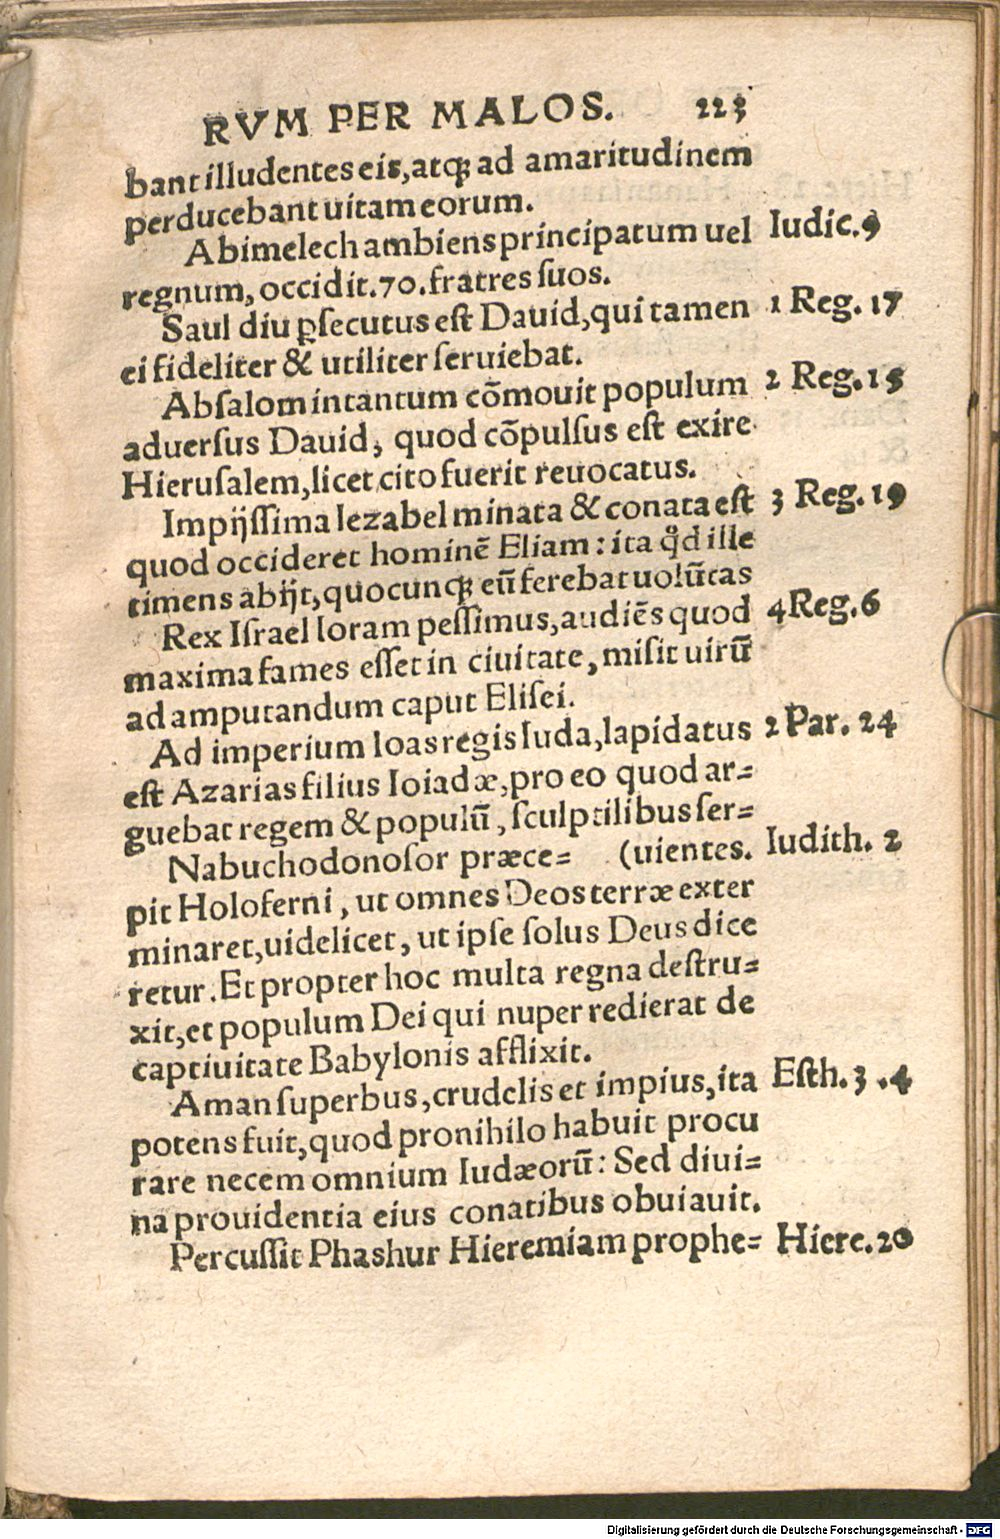 RVM PER MALOS. 223
bant illudentes eis, atqꝫ ad amaritudinem
perducebant uitam eorum.
Abimelech ambiens principatum uel Iudic. 9
regnum, occidit. 70. fratres ſuos.
Saul diu ꝑſecutus eſt Dauid, qui tamen 1 Reg. 17
ei fideliter & utiliter ſeruiebat.
Abſalom in tantum cõmouit populum 2 Reg. 15
aduerſus Dauid, quod cõpulſus eſt exire
Hieruſalem, licet cito fuerit reuocatus.
Impijſſima Iezabel minata & conata eſt 3 Reg. 19
quod occideret hominẽ Eliam: ita qd̛ ille
timens abijt, quocunqꝫ eũ ferebat uolũtas
Rex Iſrael Ioram peſſimus, audiẽs quod 4 Reg. 6
maxima fames eſſet in ciuitate, miſit uirũ
ad amputandum caput Eliſei.
Ad imperium Ioas regis Iuda, lapidatus 2 Par. 24
eſt Azarias filius Ioiadæ, pro eo quod ar=
guebat regem & populũ, ſculptilibus ſer=
Nabuchodonoſor præce= (uientes. Iudith. 2
pit Holoferni, ut omnes Deos terræ exter
minaret, uidelicet, ut ipſe ſolus Deus dice
retur. Et propter hoc multa regna deſtru=
xit, et populum Dei qui nuper redierat de
captiuitate Babylonis afflixit.
Aman ſuperbus, crudelis et impius, ita Eſth. 3 .4
potens fuit, quod pro nihilo habuit procu
rare necem omnium Iudæorũ: Sed diui=
na prouidentia eius conatibus obuiauit.
Percuſſit Phashur Hieremiam prophe= Hiere. 20
Digitalisierung gefördert durch die Deutsche Forschungsgemeinschaft - DFG